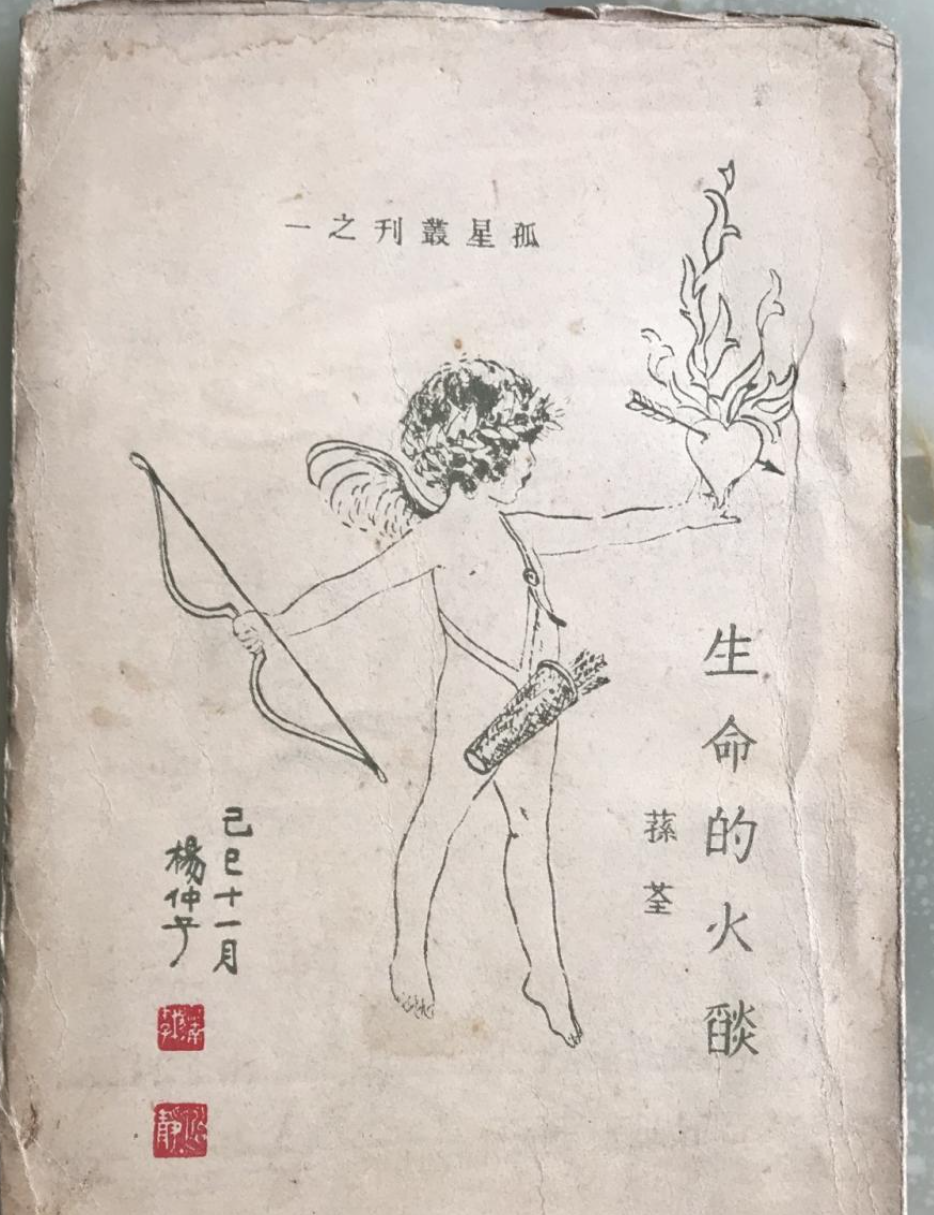 孤星叢刊之一
生命的火燄
蓀荃
己巳十一月
楊仲子